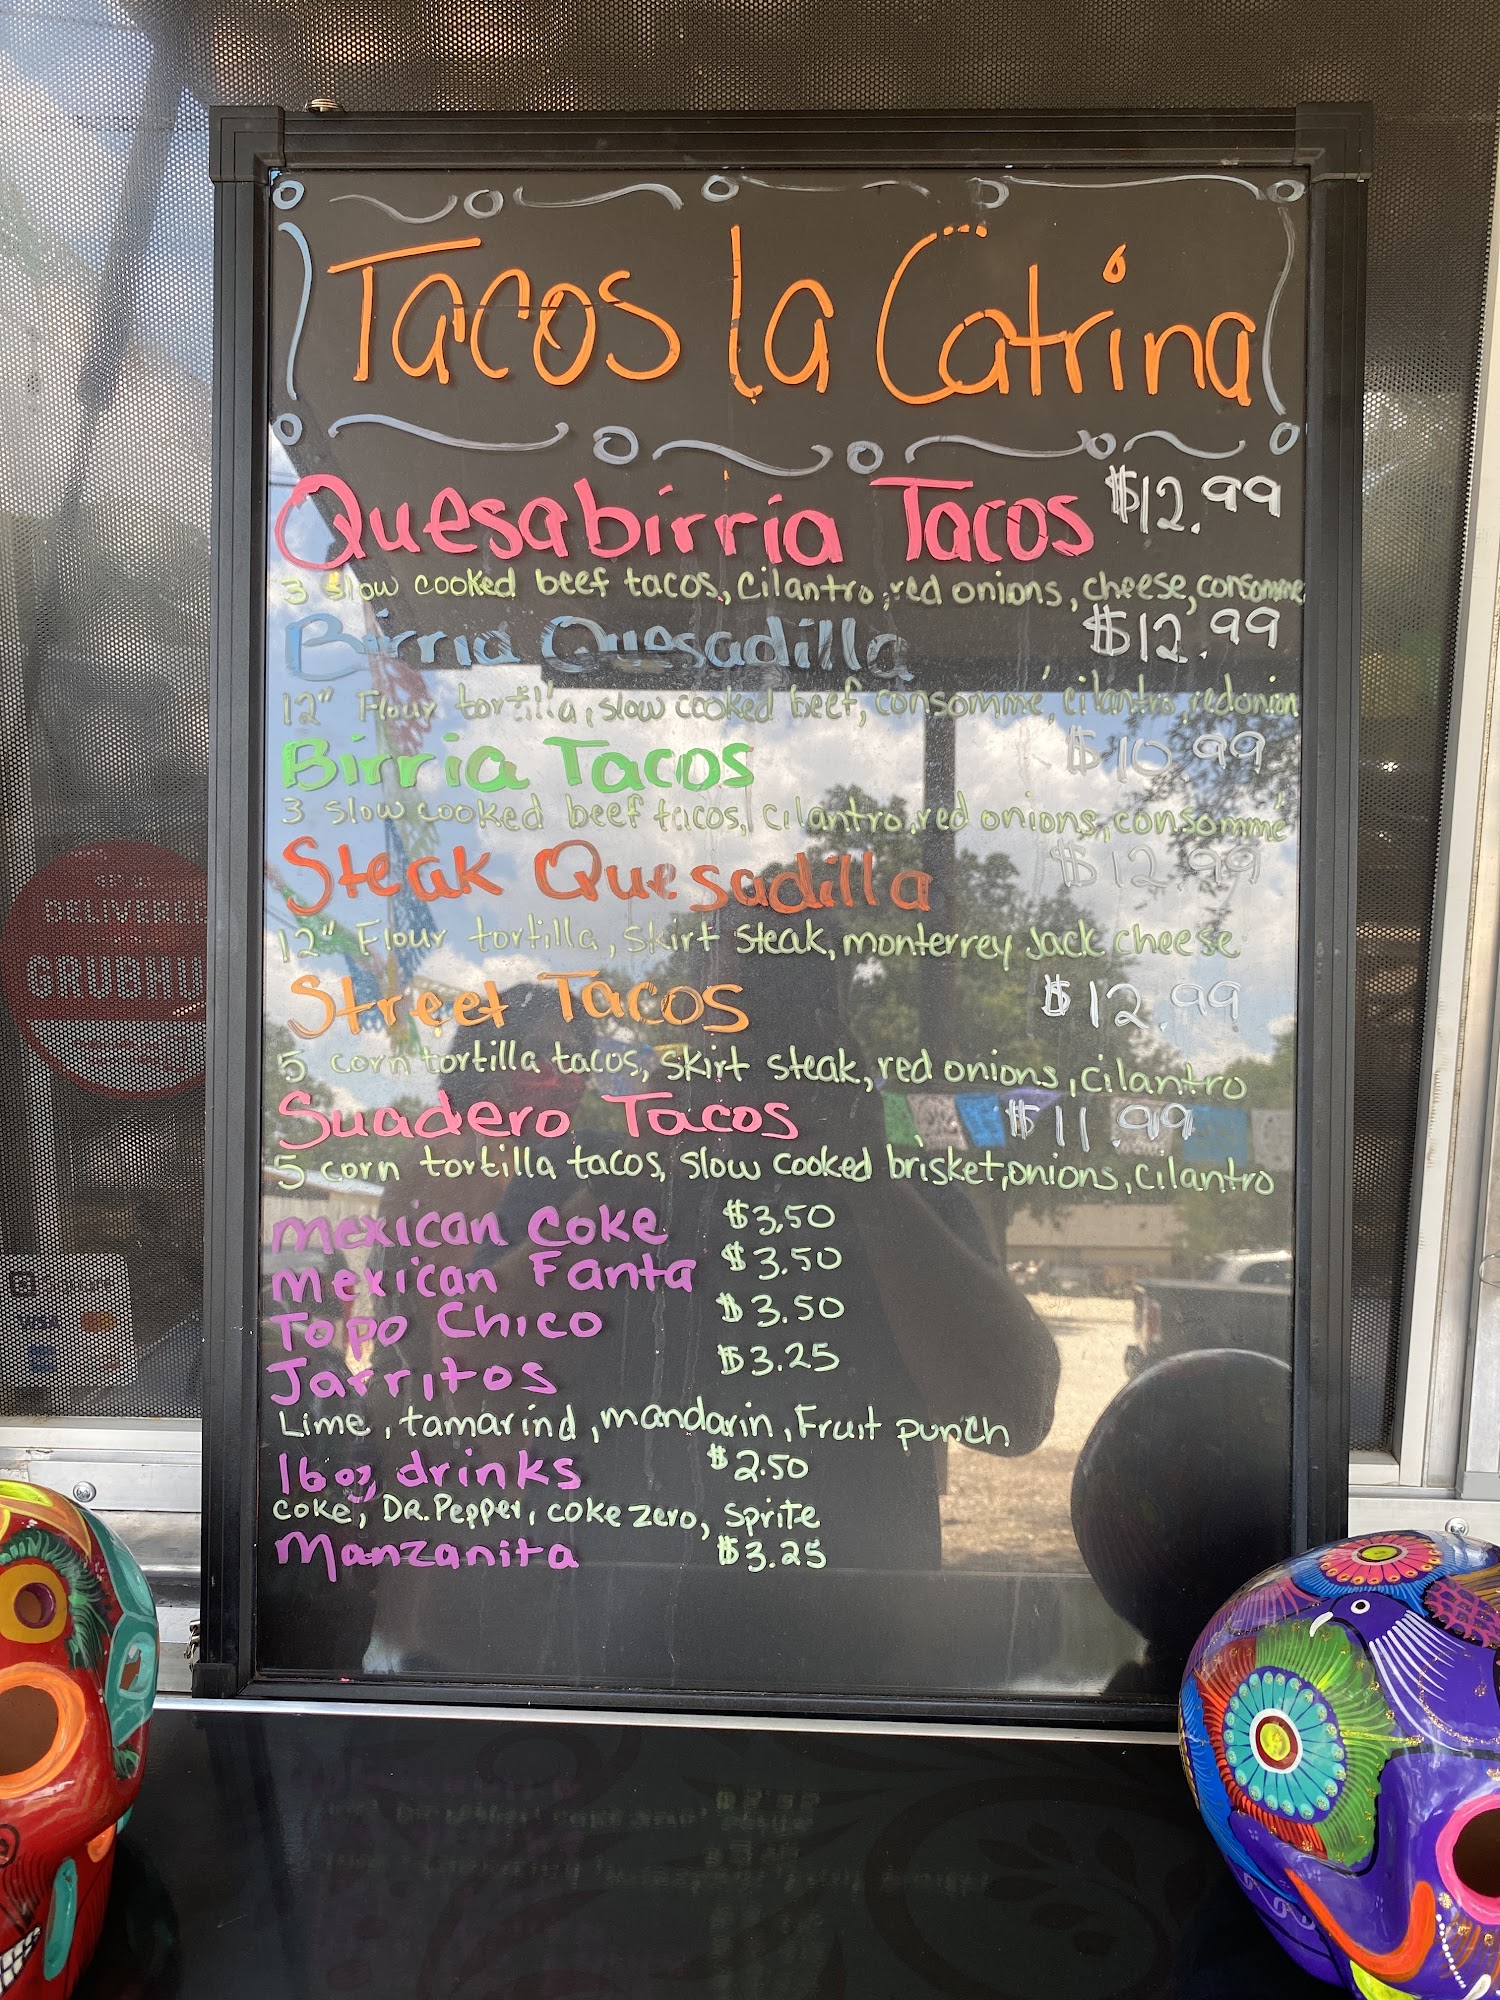 Tacos la Catrina
Quesabirria Tacos $12.99
3 slow cooked beef tacos, cilantro, red onions, cheese, consomme
Birria Quesadilla $12.99
12" Flour tortilla, slow cooked beef, consommé, cilantro, red onion
Birria Tacos $10.99
3 slow cooked beef tacos, cilantro, red onions, consommé
Steak Quesadilla $12.99
12" Flour tortilla, skirt steak, monterrey Jack cheese
Street Tacos $12.99
5 corn tortilla tacos, skirt steak, red onions, cilantro
Suadero Tacos $11.99
5 corn tortilla tacos, slow cooked brisket, onions, cilantro
Mexican Coke $3.50
Mexican Fanta $3.50
Topo Chico $3.50
Jarritos $3.25
Lime, tamarind, mandarin, Fruit punch
16 oz drinks $2.50
coke, DR. Pepper, coke zero, sprite
Manzanita $3.25
DELIVERED
GRUBHU
VISA